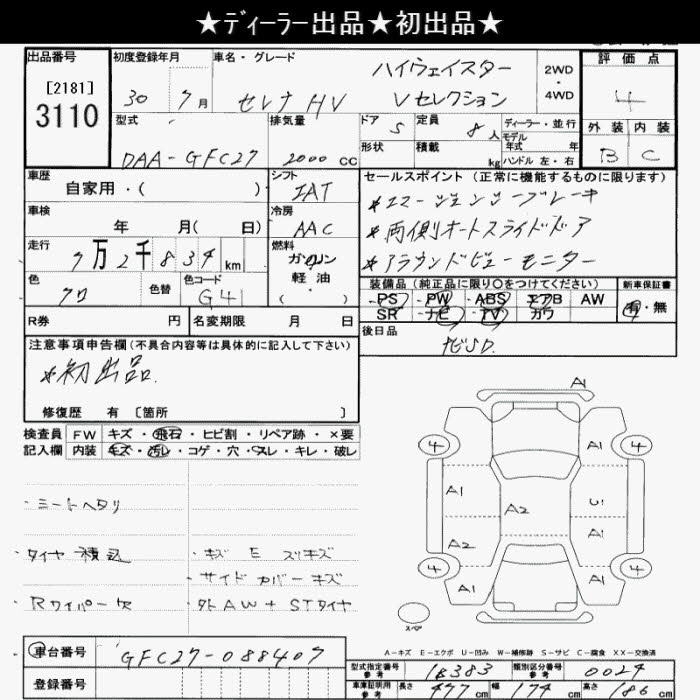 ★ディーラー出品★初出品★
出品番号 初度登録年月 車名・グレード 2WD・4WD 評価点
[2181]
3110
30 7月 セレナ HV ハイウェイスター
Vセレクション
4
外装 内装
B C
型式 排気量 ドア 定員 ディーラー・並行
モデル年式 年
DAA-GFC27 2000 CC 5 8人
形状 積載 kg ハンドル 左・右
車歴 シフト セールスポイント (正常に機能するものに限ります)
自家用・( ) IAT
*エマージェンシーブレーキ
車検 年 月( 日) 冷房 AAC
*両側オートスライドドア
走行 7万2千834km 燃料 ガソリン・軽油・( )
*アラウンドビューモニター
色 クロ 色替 色コード G41
装備品 (純正品に限り○をつけてください) 新車保証書
PS PW ABS エアB AW 有・無
SR ナビ TV カワ
R券 円 名変期限 月 日 後日品
ナビSD.
注意事項申告欄(不具合内容等は具体的に記入して下さい)
*初出品.
修復歴 有 [箇所 ]
検査員記入欄 FW キズ・飛石・ヒビ割・リペア跡・×要
内装 キズ・汚レ・コゲ・穴・スレ・キレ・破レ
・シートヘタリ
・タイヤ積込 ・キズ E スリキズ
・サイドカバーキズ
・Rワイパー欠 ・外AW+STタイヤ
A1
4 A1 4
A1 A2 U1
A2 A1
4 A1 A1 4
スペア
A-キズ E-エクボ U-凹み W-補修跡 S-サビ C-腐食 XX-交換済
車台番号 GFC27-088407
登録番号
型式指定番号 参考 18383 類別区分番号 参考 0024
車庫証明用 参考 長さ 477cm 幅 174cm 高さ 186cm